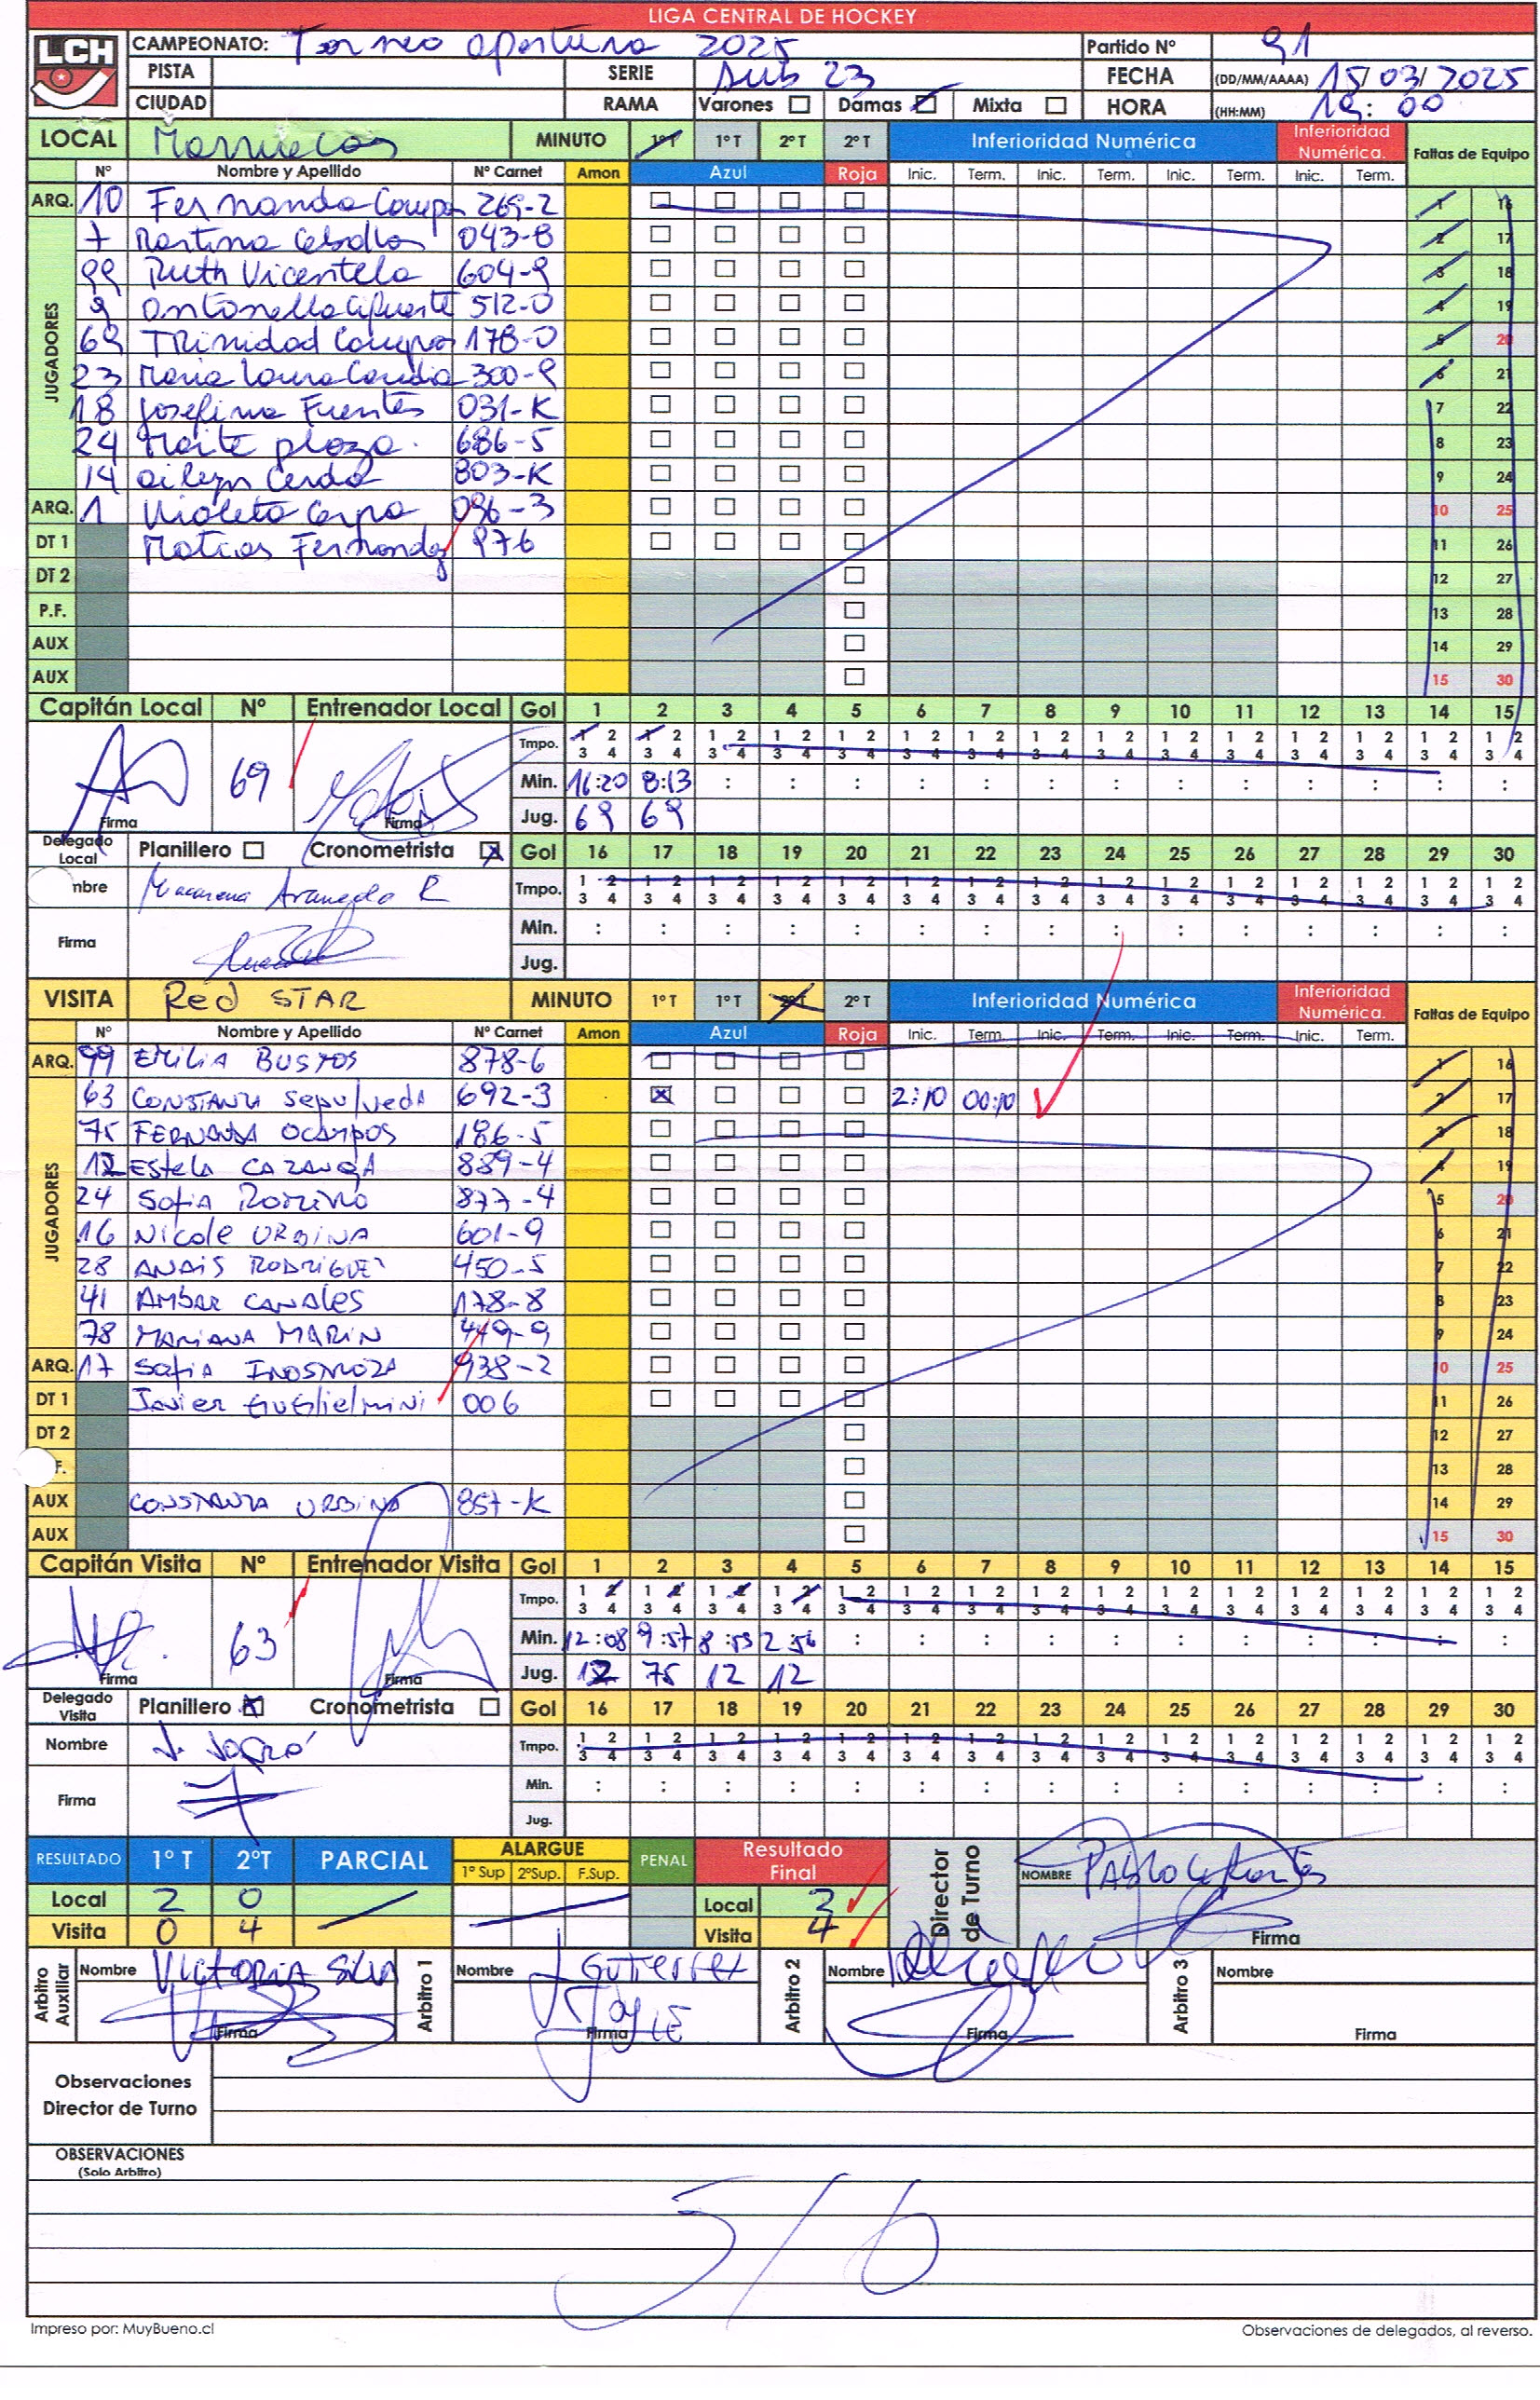 LIGA CENTRAL DE HOCKEY
LCH CAMPEONATO: Torneo apertura 2025 Partido Nº 91
PISTA SERIE Sub 23 FECHA (DD/MM/AAAA) 15/03/2025
CIUDAD RAMA Varones Damas Mixta HORA (HH:MM) 19:00
LOCAL Marruecos MINUTO 1º T 1º T 2º T 2º T Inferioridad Numérica Inferioridad Numérica. Faltas de Equipo
Nº Nombre y Apellido Nº Carnet Amon Azul Roja Inic. Term. Inic. Term. Inic. Term. Inic. Term.
ARQ. 10 Fernanda Campo 269-2 1 16
JUGADORES
7 Martina Ceballos 043-8 2 17
99 Ruth Vicentela 604-9 3 18
9 Antonella Cifuente 512-0 4 19
69 Trinidad Campos 178-0 5 20
23 Maria Laura Candia 300-9 6 21
18 Josefina Fuentes 031-K 7 22
24 Maite plaza. 686-5 8 23
14 ailyn Cerda 803-K 9 24
ARQ. 1 Violeta 096-3 10 25
DT 1 Matias Fernandez 976 11 26
DT 2 12 27
P.F. 13 28
AUX 14 29
AUX 15 30
Capitán Local Nº Entrenador Local Gol 1 2 3 4 5 6 7 8 9 10 11 12 13 14 15
Tmpo. 1 2 1 2 1 2 1 2 1 2 1 2 1 2 1 2 1 2 1 2 1 2 1 2 1 2 1 2 1 2
3 4 3 4 3 4 3 4 3 4 3 4 3 4 3 4 3 4 3 4 3 4 3 4 3 4 3 4 3 4
69 Min. 16:20 8:13 : : : : : : : : : : : : :
Firma Firma Jug. 69 69
Delegado Local Planillero Cronometrista Gol 16 17 18 19 20 21 22 23 24 25 26 27 28 29 30
mbre Macarena Araneda R Tmpo. 1 2 1 2 1 2 1 2 1 2 1 2 1 2 1 2 1 2 1 2 1 2 1 2 1 2 1 2 1 2
3 4 3 4 3 4 3 4 3 4 3 4 3 4 3 4 3 4 3 4 3 4 3 4 3 4 3 4 3 4
Firma Min. : : : : : : : : : : : : : : :
Jug.
VISITA Red STAR MINUTO 1º T 1º T 2º T 2º T Inferioridad Numérica Inferioridad Numérica. Faltas de Equipo
Nº Nombre y Apellido Nº Carnet Amon Azul Roja Inic. Term. Inic. Term. Inic. Term. Inic. Term.
ARQ. 99 EMILIA BUSTOS 878-6 1 16
JUGADORES
63 CONSTANZA Sepulveda 692-3 2:10 00:10 2 17
75 FERNANDA OCAMPOS 186-5 3 18
12 Estela CAZANGA 889-4 4 19
24 Sofia 877-4 5 20
16 Nicole URBINA 601-9 6 21
28 ANAIS RODRIGUEZ 450-5 7 22
41 AMBAR CANALES 178-8 8 23
78 MARIANA MARIN 449-9 9 24
ARQ. 17 Sofia INOSTROZA 938-2 10 25
DT 1 Javier GUGlielmini 006 11 26
DT 2 12 27
F. 13 28
AUX CONSTANZA URBINA 857-K 14 29
AUX 15 30
Capitán Visita Nº Entrenador Visita Gol 1 2 3 4 5 6 7 8 9 10 11 12 13 14 15
Tmpo. 1 2 1 2 1 2 1 2 1 2 1 2 1 2 1 2 1 2 1 2 1 2 1 2 1 2 1 2 1 2
3 4 3 4 3 4 3 4 3 4 3 4 3 4 3 4 3 4 3 4 3 4 3 4 3 4 3 4 3 4
63 Min. 12:08 9:57 8:53 2:56 : : : : : : : : : : :
Firma Firma Jug. 12 75 12 12
Delegado Visita Planillero Cronometrista Gol 16 17 18 19 20 21 22 23 24 25 26 27 28 29 30
Nombre Tmpo. 1 2 1 2 1 2 1 2 1 2 1 2 1 2 1 2 1 2 1 2 1 2 1 2 1 2 1 2 1 2
3 4 3 4 3 4 3 4 3 4 3 4 3 4 3 4 3 4 3 4 3 4 3 4 3 4 3 4 3 4
Firma Min. : : : : : : : : : : : : : : :
Jug.
RESULTADO 1º T 2ºT PARCIAL ALARGUE 1º Sup 2ºSup. F.Sup. PENAL Resultado Final Director de Turno NOMBRE PABLO
Local 2 0 Local 3
Visita 0 4 Visita 4 Firma
Arbitro Auxiliar Nombre VICTORIA Silva Arbitro 1 Nombre J Gutierrez Arbitro 2 Nombre Arbitro 3 Nombre
Firma Firma Firma Firma
Observaciones
Director de Turno
OBSERVACIONES
(Solo Arbitro)
S/O
Impreso por: MuyBueno.cl Observaciones de delegados, al reverso.